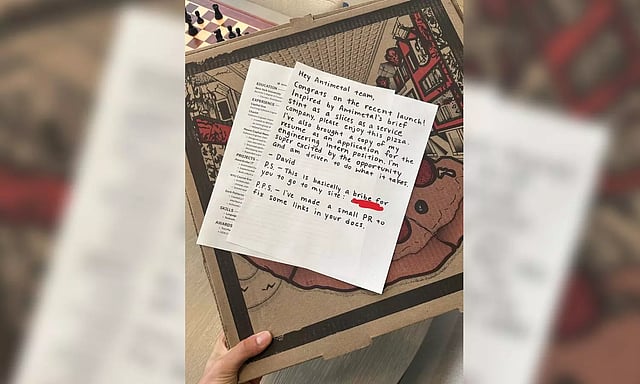 Hey Antimetal team,
Congrats on the recent launch!
Inspired by Antimetal's brief
stint as a slices as a service
company, please enjoy this pizza.
I've also brought a copy of my
resume as an application for the
engineering intern position. I'm
super excited by the opportunity
and am driven to do what it takes.
- David
P.S - This is basically a bribe for
you to go to my site:
P.P.S. - I've made a small PR to
fix some links in your docs.
EDUCATION
EXPERIENCE
PROJECTS
SKILLS
AWARDS